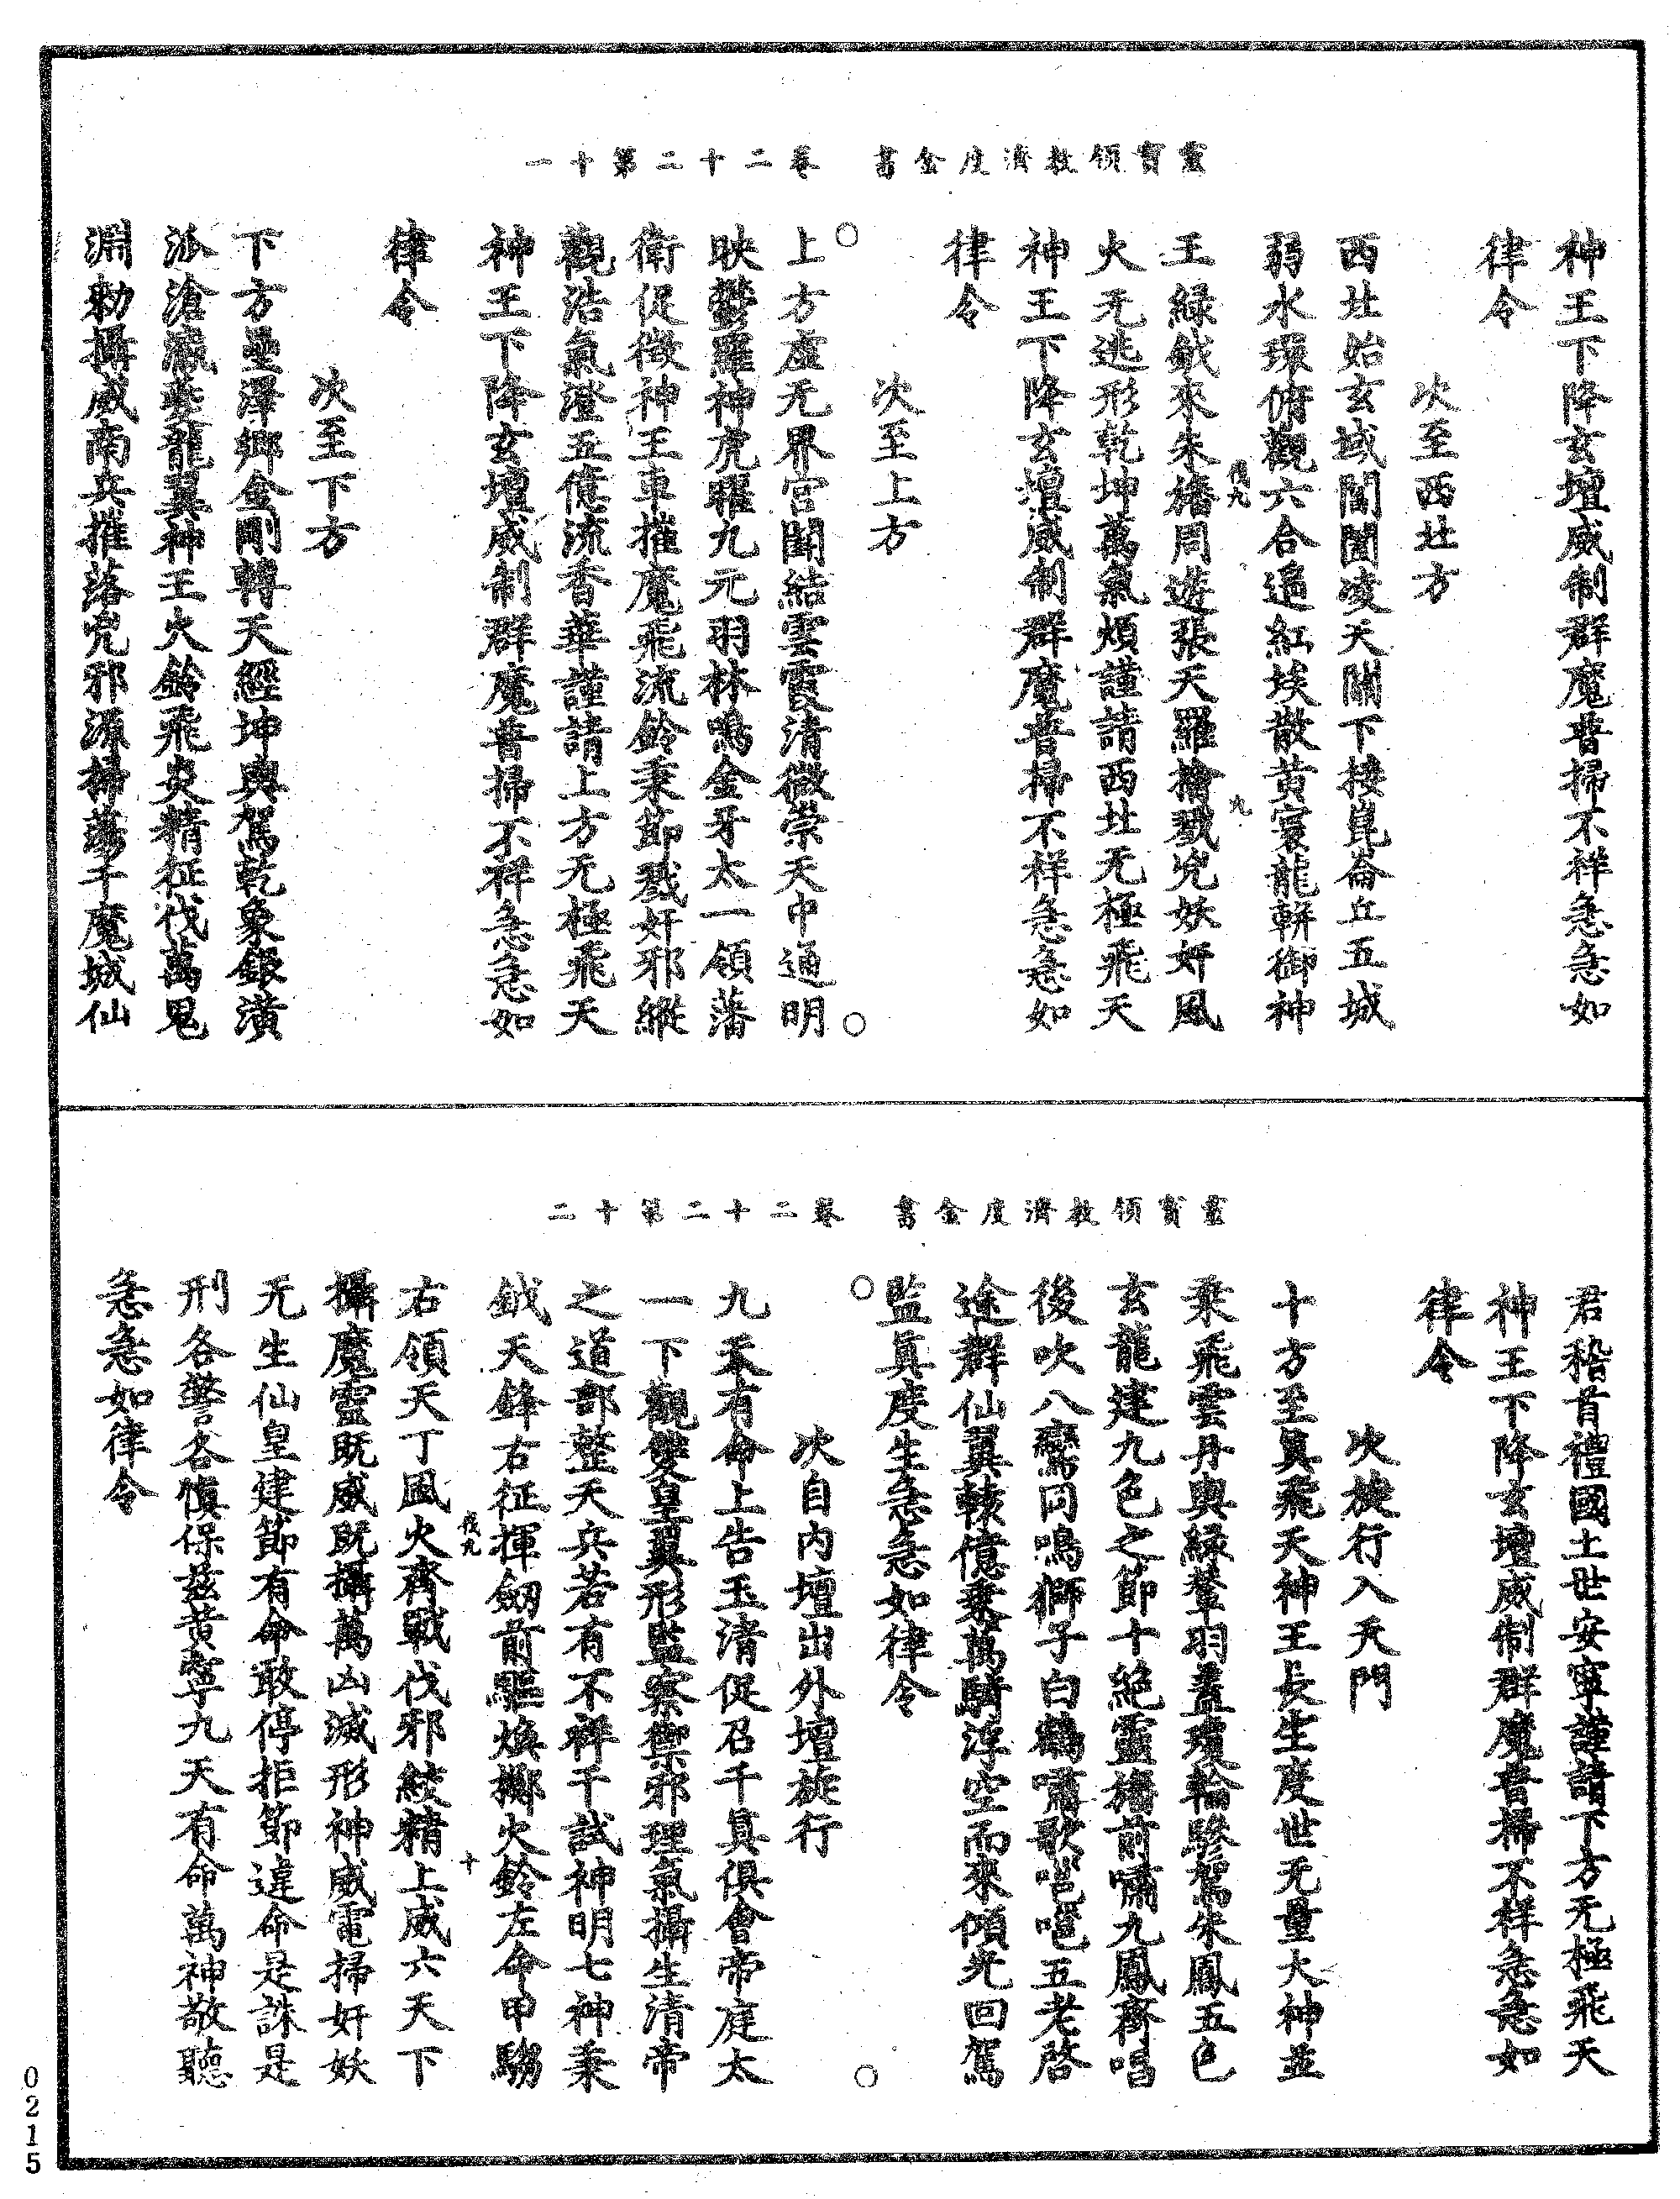 靈寶領教濟度金書　卷二十二第十一
神王下降玄壇威制群魔普掃不祥急急如
律令
次至西北方
西北始玄域閶闔凌天關下接崑崙丘五城
弱水環俯觀六合遥紅埃散黄寰龍軿御神
伐九
九
王緑鉞來朱旛同遊張天羅搶戮兇妖奸風
火无逃形乾坤萬氣煩謹請西北无極飛天
神王下降玄壇威制群魔普掃不祥急急如
律令
次至上方
上方虚无界宫闕結雲霞清微崇天中通明
映鬱羅神虎曜九元羽林鳴金牙太一領蕃
衛促徵神王車摧魔飛流鈴秉節戮奸邪縱
觀浩氣澄五億流香華謹請上方无極飛天
神王下降玄壇威制群魔普掃不祥急急如
律令
次至下方
下方壘澤鄉金剛轉天經坤輿駕乾象銀潢
派滄瀛蒼龍翼神王火鈴飛炎精征伐萬鬼
淵勑攝威南兵摧落兇邪源掃蕩千魔城仙
靈寶領教濟度金書　卷二十二第十二
君稽首禮國土世安寧謹請下方无極飛天
神王下降玄壇威制群魔普掃不祥急急如
律令
次旋行入天門
十方至真飛天神王長生度世无量大神並
乘飛雲丹輿緑輦羽蓋瓊輪驂駕朱鳳五色
玄龍建九色之節十絶靈旛前嘯九鳳齊唱
後吹八鸞同鳴獅子白鶴嘯歌嗈嗈五老啓
途群仙翼轅億乘萬騎浮空而來傾光回駕
監真度生急急如律令
次自内壇出外壇旋行
九天有命上告玉清促召千真俱會帝庭太
一下觀雙皇翼形監察禦邪理氣攝生清帝
之道部整天兵若有不祥干試神明七神秉
鉞天鋒右征揮劒前驅焕擲火鈴左命甲騶
伐九
十
右領天丁風火齊戰伐邪綾精上威六天下
攝魔靈既威既攝萬凶滅形神威電掃奸妖
无生仙皇建節有命敢停拒節違命是誅是
刑各警各慎保兹黄寧九天有命萬神敬聽
急急如律令
0215